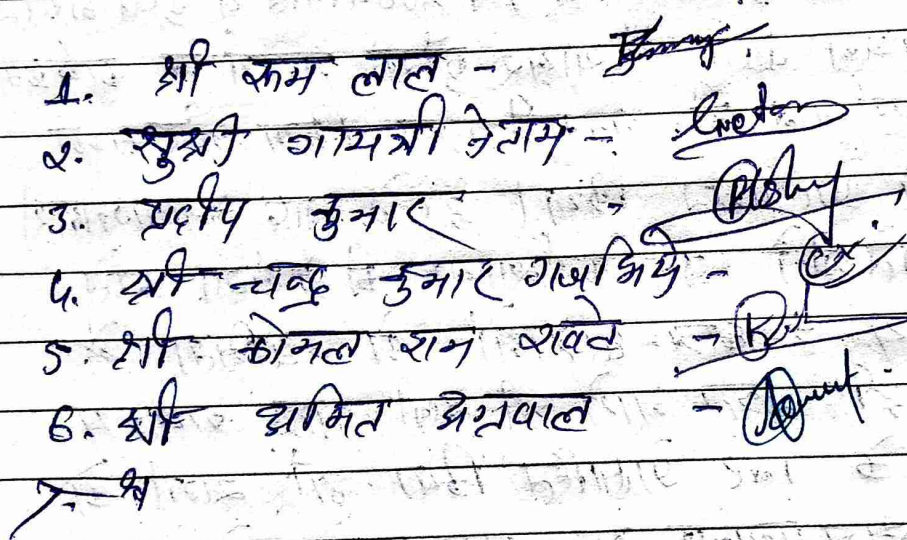 1. श्री राम लाल -
2. सुश्री गायत्री नेताम -
3. प्रदीप कुमार -
4. श्री चन्द्र कुमार गजभिये -
5. श्री कोमल राम रावटे -
6. श्री अमित अग्रवाल -
7. श्र